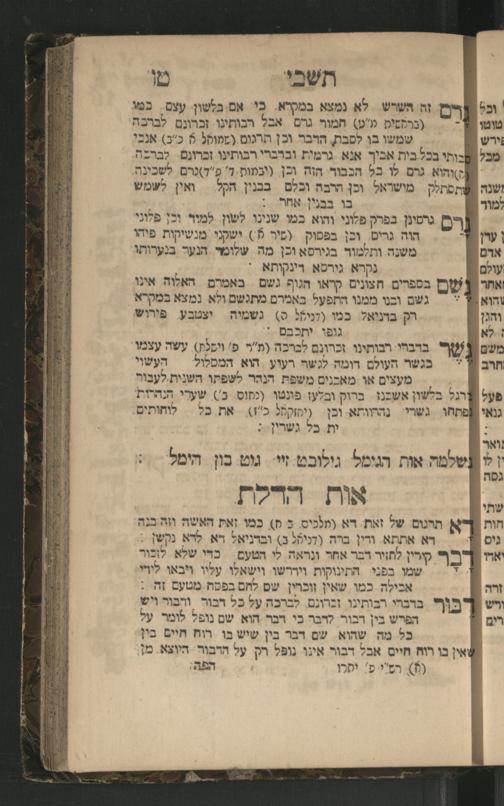 תשבי טו
גָרַם זה השרש לא נמצא במקרא כי אם בלשון עצם כמו
(בראשית מ"ט) חמור גרם אבל רבותינו זכרונם לברכה
שמשו בו לסבת הדבר וכן תרגום (שמואל א כ"ב) אנכי
סבותי בכל בית אביך אנא גרמית ובדברי רבותינו זכרונם לברכה
(א)והוא גרם לו כל הכבוד הזה וכן (יבמות ד' ס"ד)גרם לשכינה
שתסתלק מישראל וכן הרבה וכלם בבנין הקל ואין לשמש
בו בבנין אחר :
גָרַס גרסינן בפרק פלוני והוא כמו שנינו לשון למוד וכן פלוני
הוה גריס וכן בפסוק (שיר א) ישקני מנשיקות פיהו
משנה ותלמוד בגירסא וכן מה שלומד הנער בנערותו
נקרא גירסא דינקותא
גֶשֶׁם בספרים חצונים קראו הגוף גשם באמרם האלוה אינו
גשם ובנו ממנו התפעל באמרם מתגשם ולא נמצא במקרא
רק בדניאל כמו (דניאל ה) גשמיה יצטבע פירוש
גופי יתכבס
גֶשֶׁר בדברי רבותינו זכרונם לברכה (מ"ר פ' וישלח) עשה עצמו
כגשר העולם דומה לגשר רעוע הוא המסלול העשוי
מעצים או מאבנים משפת הנהר לשפתו השנית לעבור
ברגל בלשון אשכנז ברוק ובלעז פונטו (נחום ב') שערי הנהרות
נפתחו גשרי נהרוותא וכן (יחזקאל כ"ז) את כל לוחותים
ית כל גשרין :
נשלמה אות הגימל
אות הדלת
דָא תרגום של זאת דא (מלכים ב ח) כמו זאת האשה וזה בנה
דא אתתא ודין ברה (דניאל ב) ובדניאל דא לדא נקשן :
דָבָר קורין לחזיר דבר אחר ונראה לי הטעם כדי שלא לזכור
שמו בפני התינוקות וידרשו וישאלו עליו ויבאו לידי
אכילה כמו שאין זוכרין שם לחם בפסח מטעם זה :
דִבּוּר בדברי רבותינו זכרונם לברכה על כל דבור ודבור ויש
הפרש בין דבור לדבר כי דבר הוא שם נופל לומר על
כל מה שהוא שם דבר בין שיש בו רוח חיים בין
שאין בו רוח חיים אבל דבור אינו נופל רק על הדבור היוצא מן
(א) רש"י פ' יתרו הפה